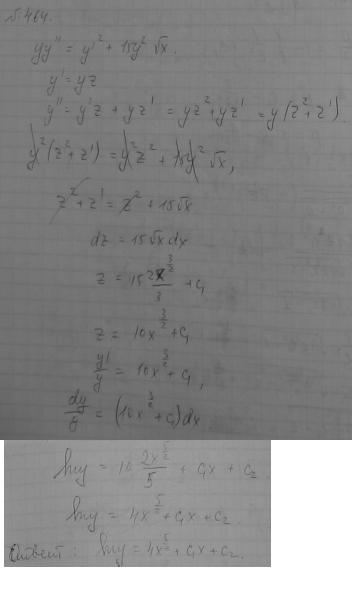 № 464.
yy'' = y'² + 15y² √x.
y' = yz
y'' = y'z + yz' = yz² + yz' = y(z² + z').
y²(z² + z') = y²z² + 15y² √x,
z² + z' = z² + 15√x
dz = 15√x dx
z = 15 2x^(3/2)/3 + C₁
z = 10x^(3/2) + C₁
y'/y = 10x^(3/2) + C₁,
dy/y = (10x^(3/2) + C₁)dx.
ln y = 10 2x^(5/2)/5 + C₁x + C₂.
ln y = 4x^(5/2) + C₁x + C₂.
Ответ: ln y = 4x^(5/2) + C₁x + C₂.